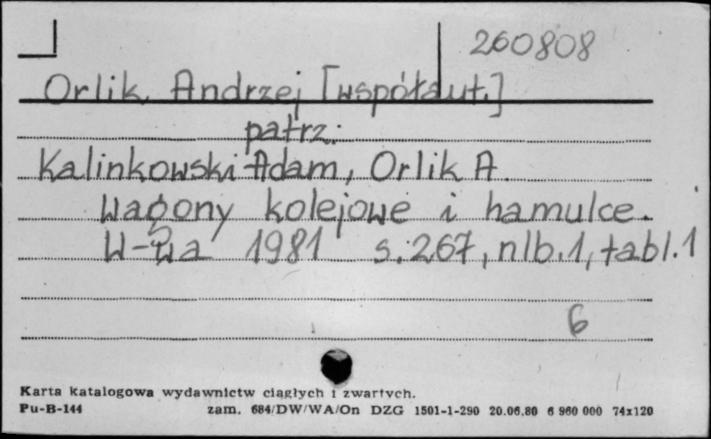 260808
Orlik, Andrzej [współaut.]
patrz:
Kalinkowski Adam, Orlik A.
Wagony kolejowe i hamulce.
W-wa 1981 s. 267, nlb. 1, tabl. 1
6
Karta katalogowa wydawnictw ciągłych i zwartych.
Pu-B-144 zam. 684/DW/WA/On DZG 1501-1-290 20.06.80 6 960 000 74x120